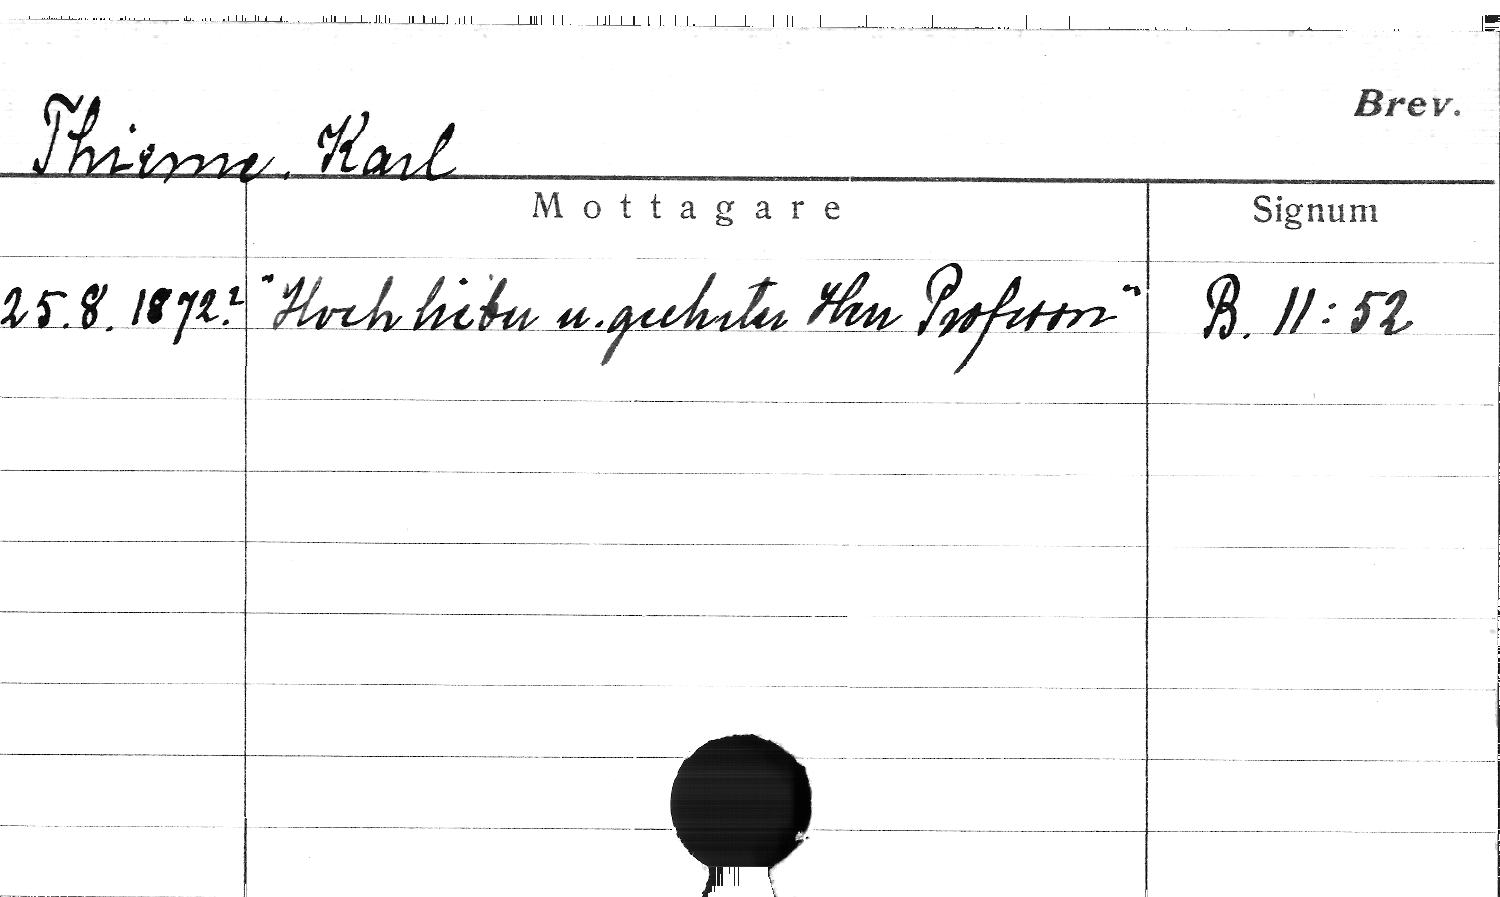 Brev.
Thieme, Karl
Mottagare Signum
25.8.1872? "Hochlieber u. geehrter Herr Professor" B. 11:52